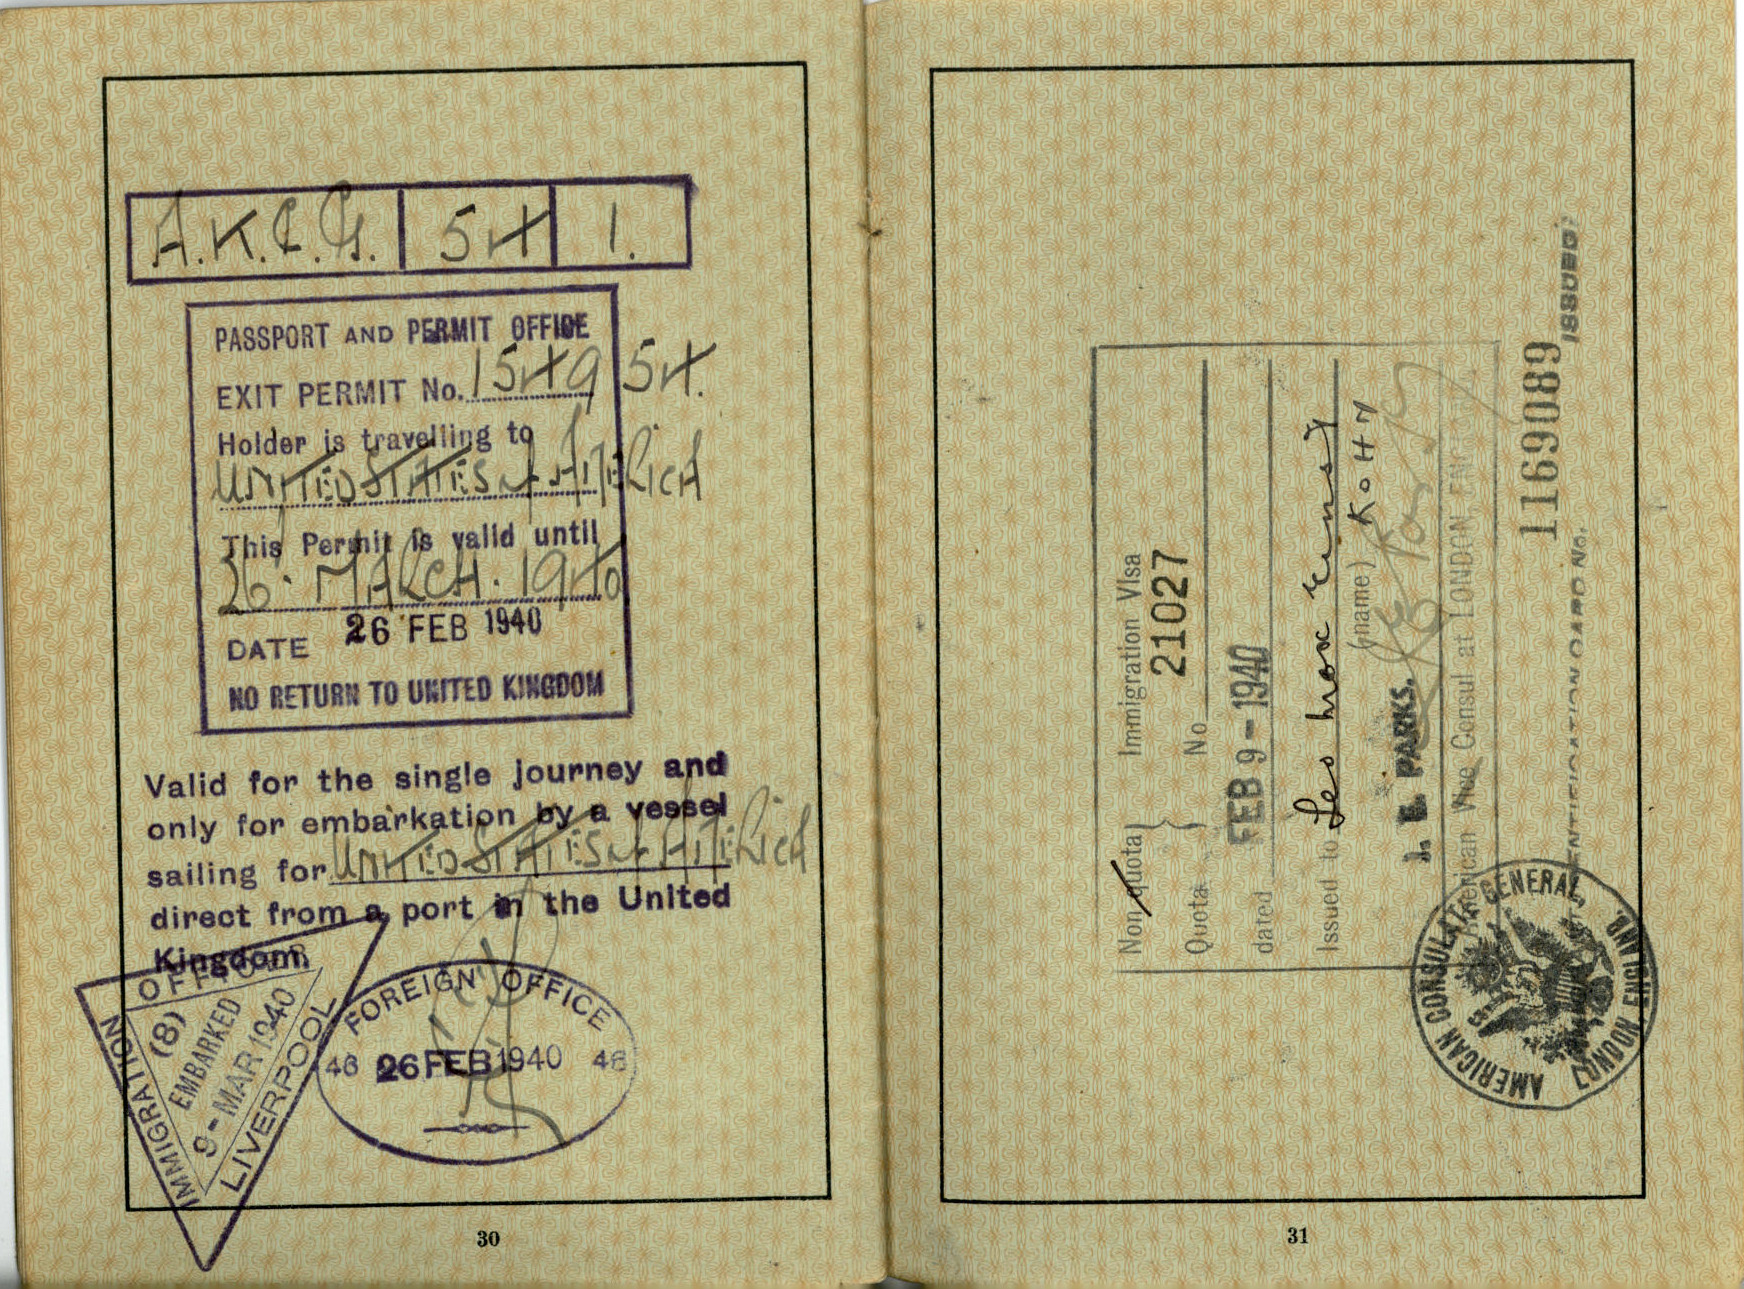 A.K.C.G. 54 1.
PASSPORT AND PERMIT OFFICE
EXIT PERMIT No. 15495 4.
Holder is travelling to
UNITED STATES of AMERICA
This Permit is valid until
26. MARCH. 1940
DATE 26 FEB 1940
NO RETURN TO UNITED KINGDOM
Valid for the single journey and
only for embarkation by a vessel
sailing for UNITED STATES of AMERICA
direct from a port in the United
Kingdom.
IMMIGRATION OFFICER
(8)
EMBARKED
9 - MAR 1940
LIVERPOOL
FOREIGN OFFICE
46 26 FEB 1940 46
30
Non quota Immigration Visa
Quota No 21027
dated FEB 9 - 1940
Issued to Leo Max Ernst
(name) KOHN
J. E. PARKS.
American Vice Consul at LONDON, ENGLAND
1169089
IDENTIFICATION CARD No. ISSUED
AMERICAN CONSULATE GENERAL,
LONDON ENGLAND.
31